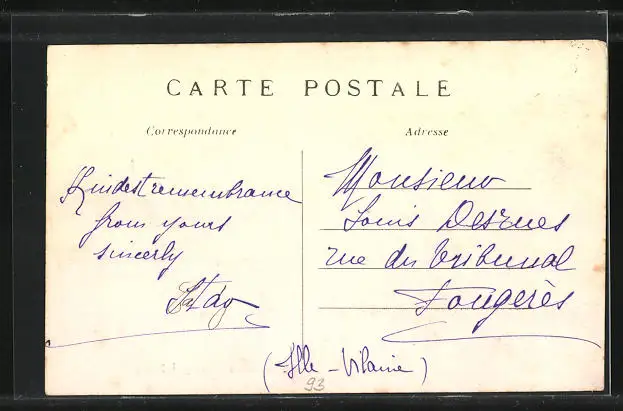 CARTE POSTALE
Correspondance
Adresse
Kindest remembrance
from yours
sincerly
Monsieur
Louis Desrues
rue du Tribunal
Fougères
(Ille-Vilaine)
93